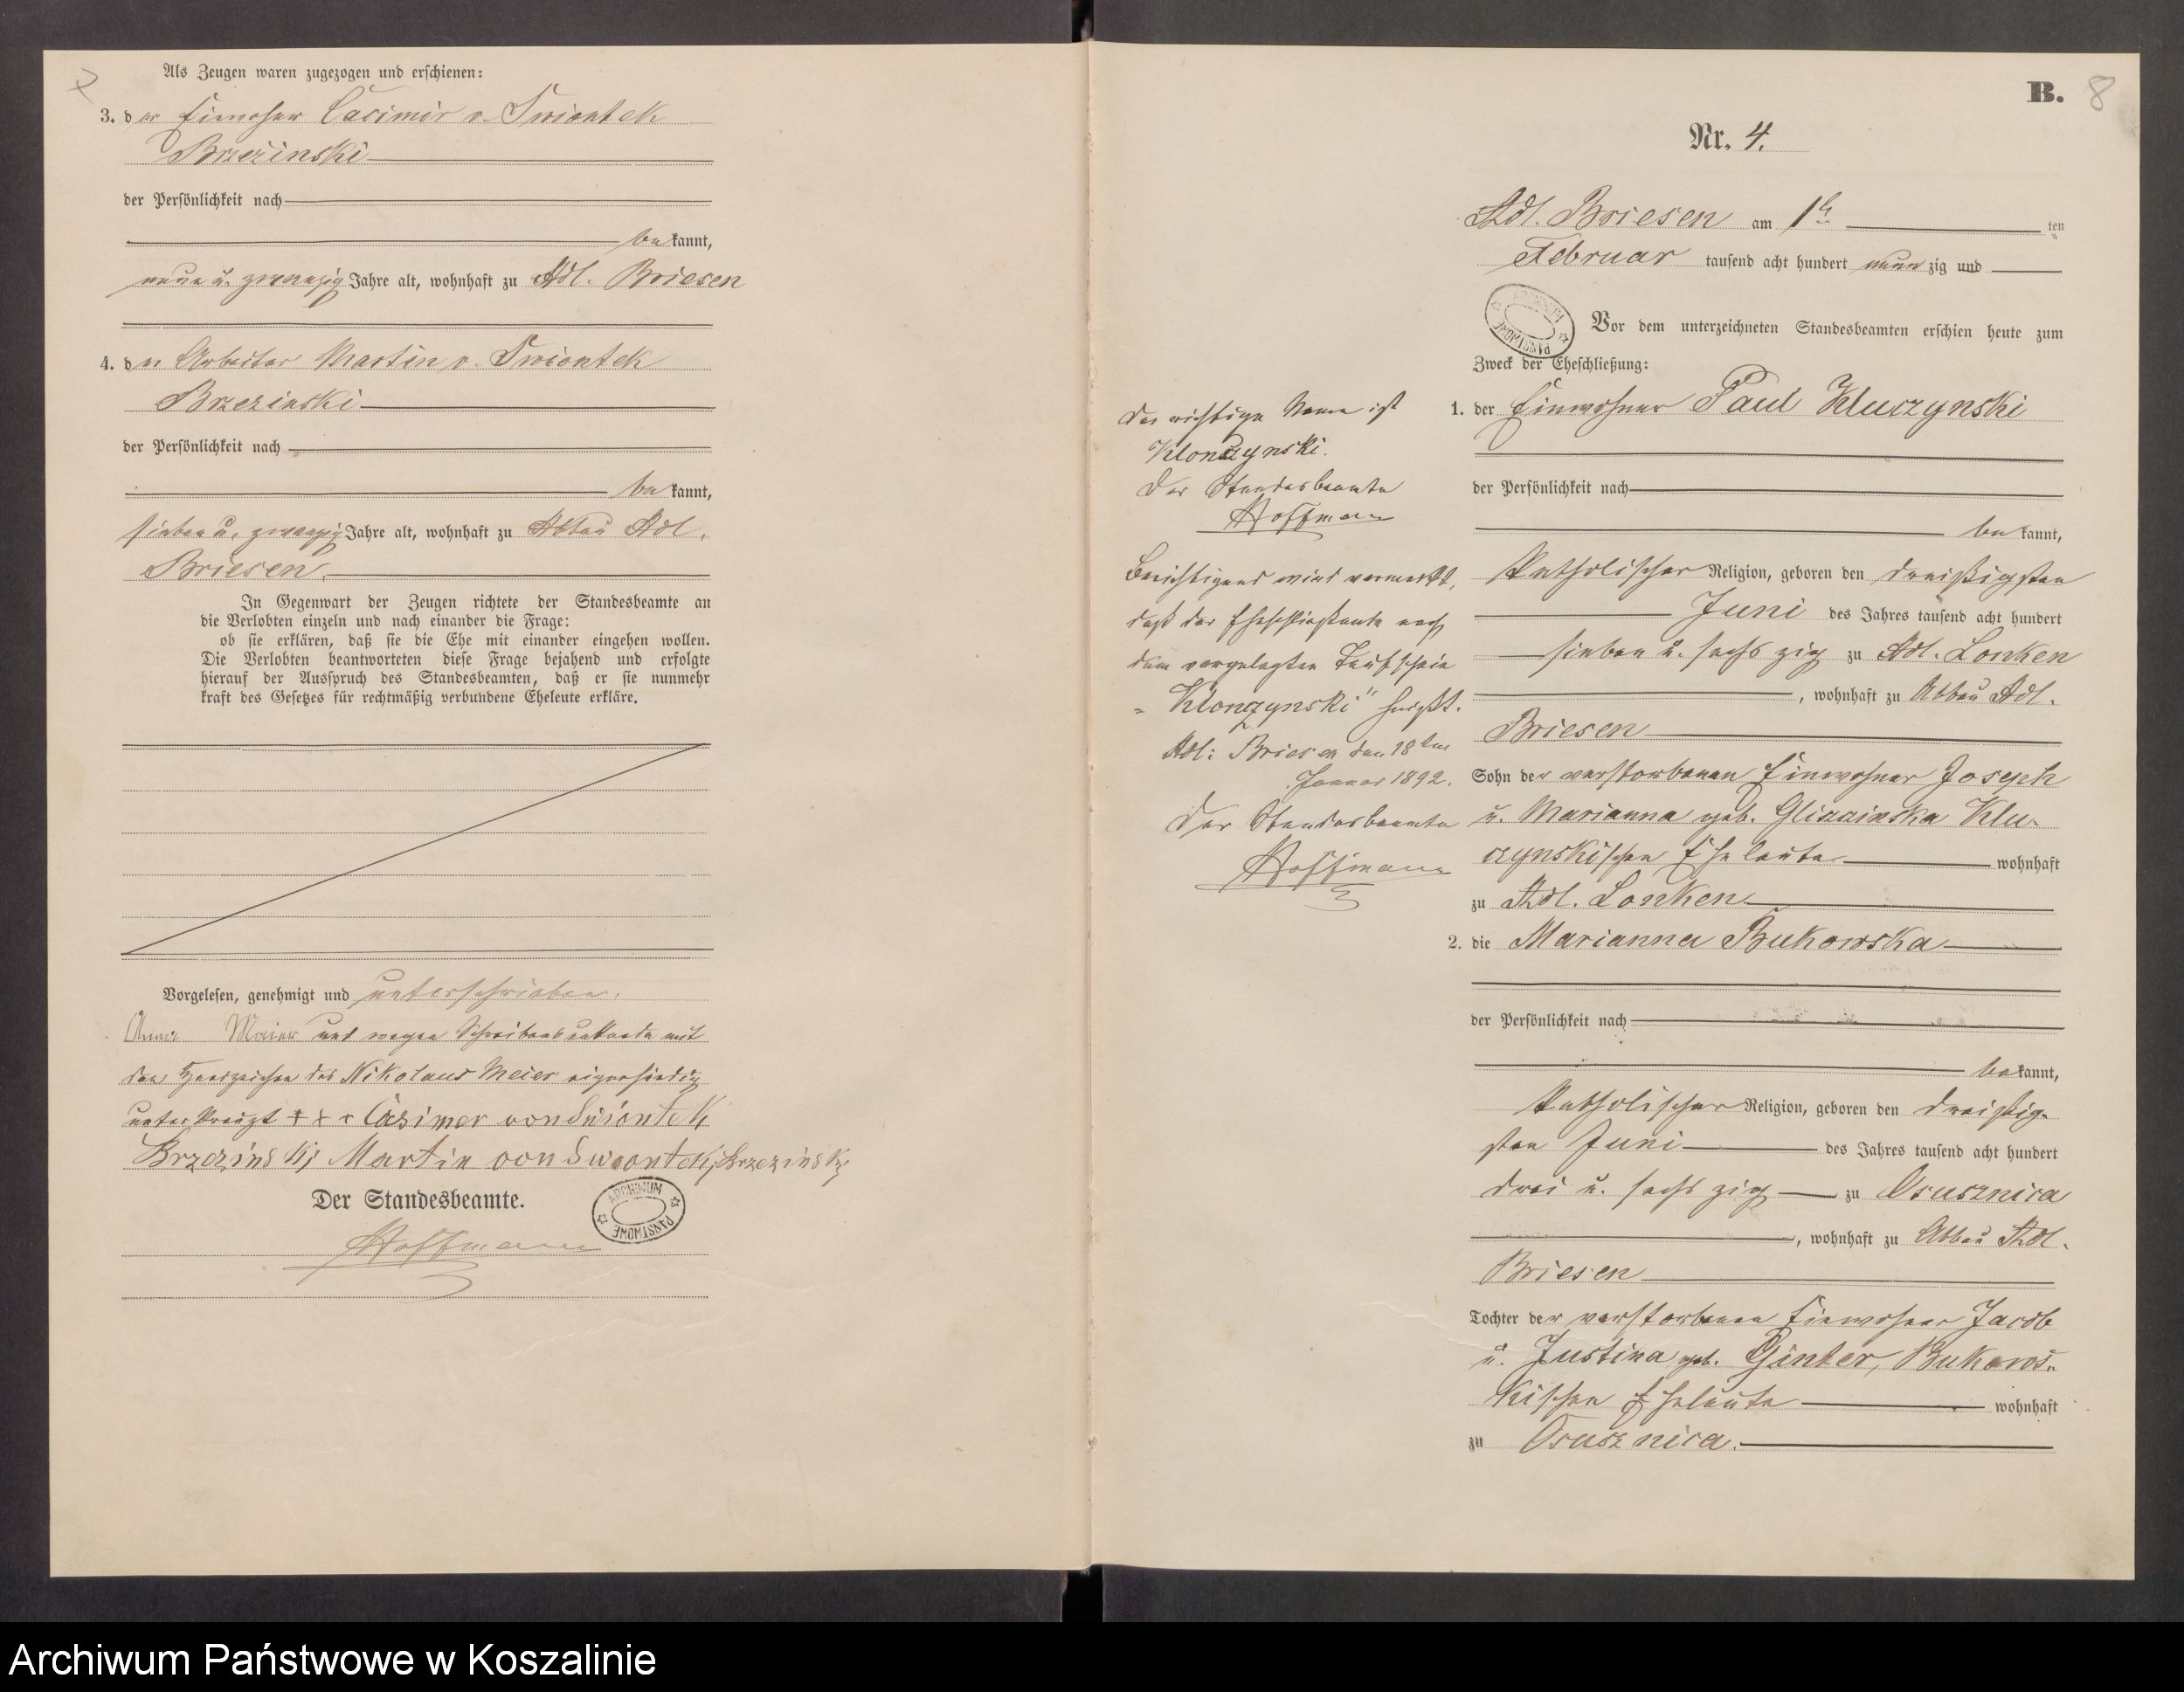 Als Zeugen waren zugezogen und erschienen:
3. der Einwohner Casimir v. Swiontek
Brzezinski
der Persönlichkeit nach
bekannt,
neun u. zwanzig Jahre alt, wohnhaft zu Adl. Briesen
4. der Arbeiter Martin v. Swiontek
Brzezinski
der Persönlichkeit nach
bekannt,
sieben u. zwanzig Jahre alt, wohnhaft zu Abbau Adl.
Briesen.
In Gegenwart der Zeugen richtete der Standesbeamte an
die Verlobten einzeln und nach einander die Frage:
ob sie erklären, daß sie die Ehe mit einander eingehen wollen.
Die Verlobten beantworteten diese Frage bejahend und erfolgte
hierauf der Ausspruch des Standesbeamten, daß er sie nunmehr
kraft des Gesetzes für rechtmäßig verbundene Eheleute erkläre.
Vorgelesen, genehmigt und unterschrieben.
und wegen Schreibensunkunde mit
den Handzeichen des Nikolaus Meier eigenhändig
unterkreuzt + + + Casimer von Swiontek
Brzezinski Martin von Swiontek Brzezinski
Der Standesbeamte.
Hoffmann
ARCHIWUM PAŃSTWOWE
B. 8
Nr. 4.
Adl. Briesen am 1ten
Februar tausend acht hundert neunzig und
ARCHIWUM PAŃSTWOWE
Vor dem unterzeichneten Standesbeamten erschien heute zum
Zweck der Eheschließung:
1. der Einwohner Paul Kluczynski
der Persönlichkeit nach
bekannt,
katholischer Religion, geboren den dreißigsten
Juni des Jahres tausend acht hundert
sieben u. sechszig zu Adl. Lonken
, wohnhaft zu Abbau Adl.
Briesen
Sohn der verstorbenen Einwohner Joseph
u. Marianna geb. Klu-
czynskischen Eheleute wohnhaft
zu Adl. Lonken
2. die Marianna Bukowska
der Persönlichkeit nach
bekannt,
katholischer Religion, geboren den dreißig-
sten Juni des Jahres tausend acht hundert
drei u. sechszig zu Osusznica
, wohnhaft zu Abbau Adl.
Briesen
Tochter der verstorbenen Einwohner Jacob
u. Justina geb. Ginter, Bukows-
kischen Eheleute wohnhaft
zu Osusznica.
Der richtige Name ist
Klonczynski.
Der Standesbeamte
Hoffmann
Berichtigend wird vermerkt,
daß der Eheschließende nach
dem vorgelegten Taufschein
"Klonczynski" heißt.
Adl. Briesen den 18ten
Januar 1892.
Der Standesbeamte
Hoffmann
Archiwum Państwowe w Koszalinie